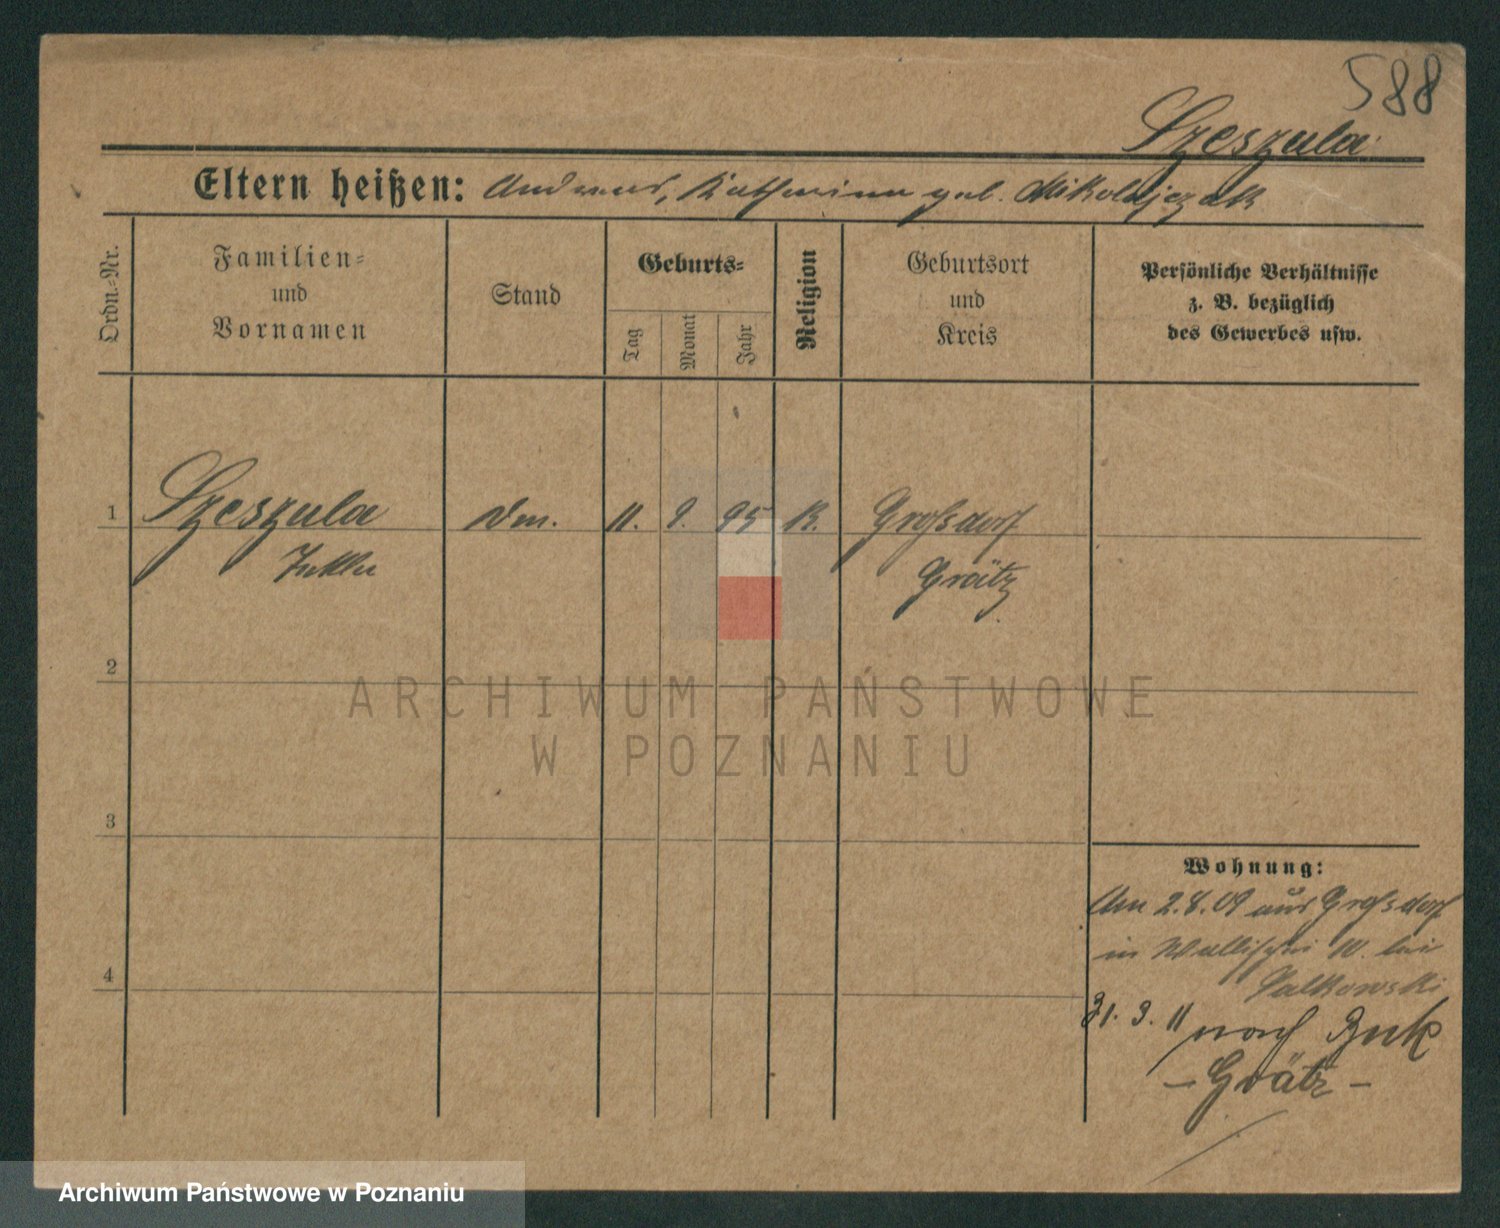 588
Szeszula
Eltern heißen: Andreas, Katharina geb. Mikolajczak
Ordn.-Nr.
Familien-
und
Vornamen
Stand
Geburts-
Tag
Monat
Jahr
Religion
Geburtsort
und
Kreis
Persönliche Verhältnisse
z. B. bezüglich
des Gewerbes usw.
1 Szeszula 11. 9. 95 K. Großdorf
Grätz
2
3
4
Wohnung:
Am 2.8.09 aus Großdorf
in Wallischei 10. bei
Palkowski
31. 3. 11 nach Buk
- Grätz -
ARCHIWUM PAŃSTWOWE
W POZNANIU
Archiwum Państwowe w Poznaniu